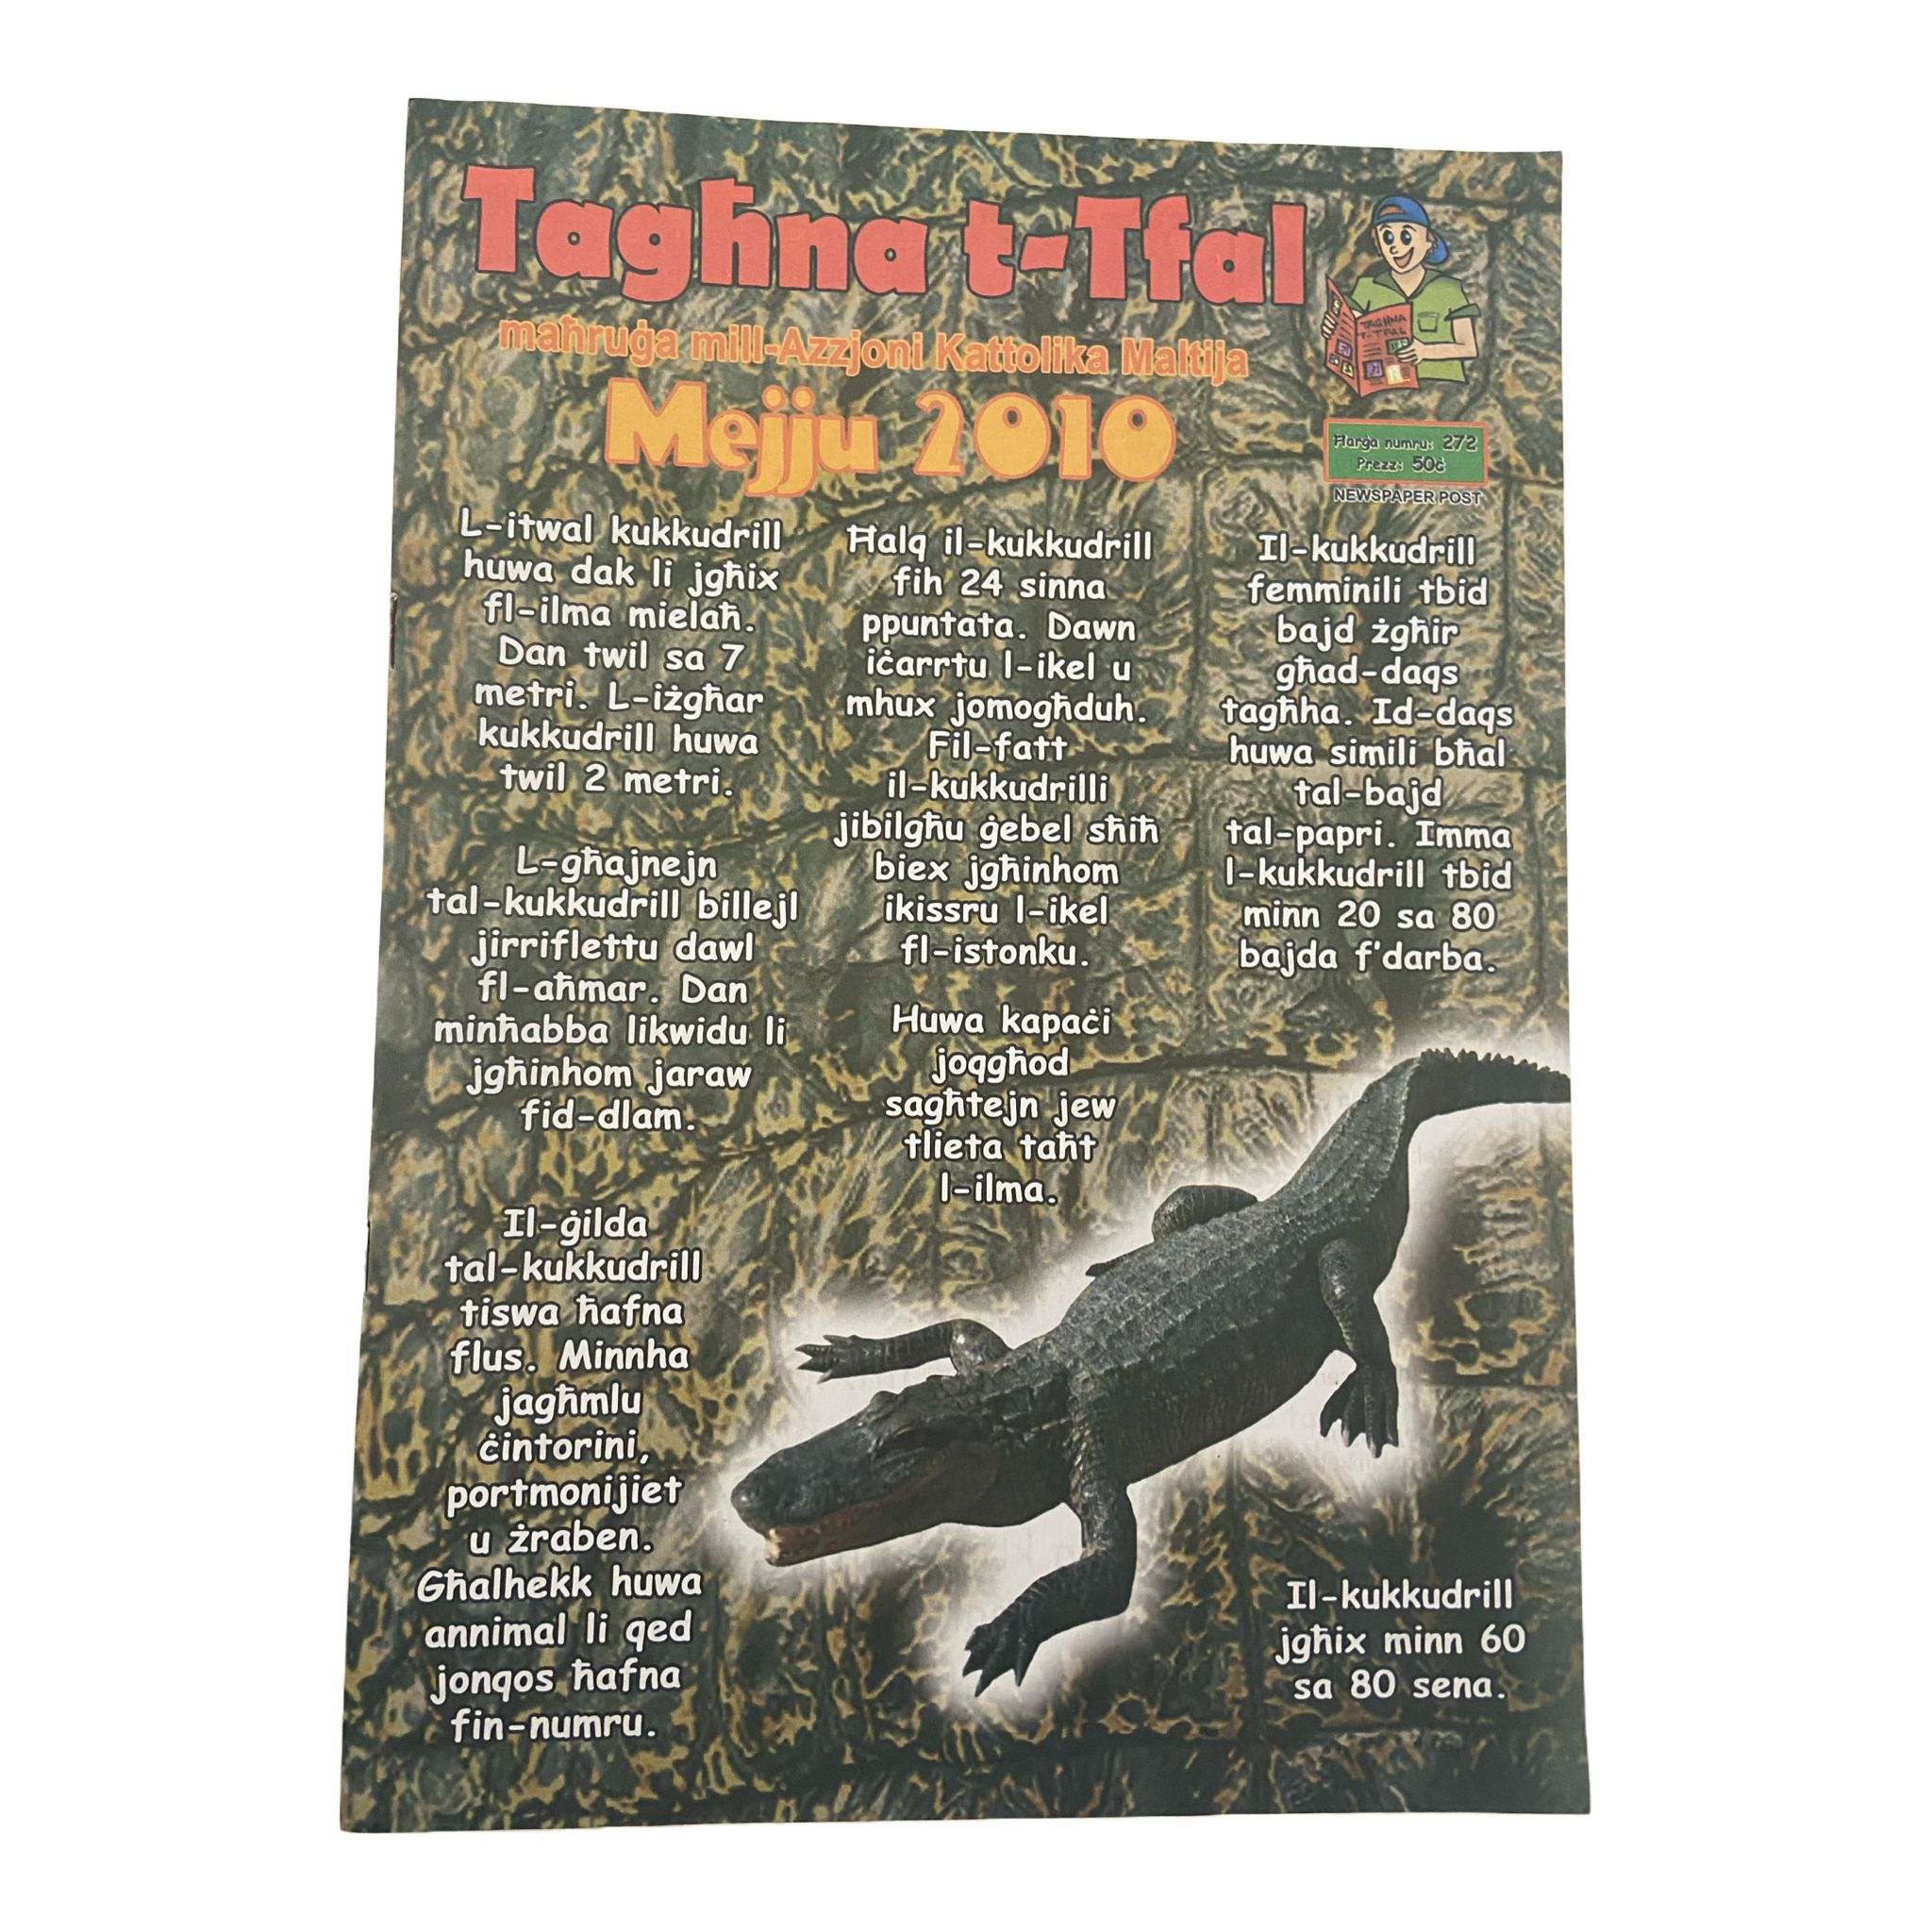 Tagħna t-Tfal
maħruġa mill-Azzjoni Kattolika Maltija
Mejju 2010
TAGĦNA
T-TFAL
Ħarġa numru: 272
Prezz: 50ċ
NEWSPAPER POST
L-itwal kukkudrill
huwa dak li jgħix
fl-ilma mielaħ.
Dan twil sa 7
metri. L-iżgħar
kukkudrill huwa
twil 2 metri.
L-għajnejn
tal-kukkudrill billejl
jirriflettu dawl
fl-aħmar. Dan
minħabba likwidu li
jgħinhom jaraw
fid-dlam.
Il-ġilda
tal-kukkudrill
tiswa ħafna
flus. Minnha
jagħmlu
ċintorini,
portmonijiet
u żraben.
Għalhekk huwa
annimal li qed
jonqos ħafna
fin-numru.
Ħalq il-kukkudrill
fih 24 sinna
ppuntata. Dawn
iċarrtu l-ikel u
mhux jomogħduh.
Fil-fatt
il-kukkudrilli
jibilgħu ġebel sħiħ
biex jgħinhom
ikissru l-ikel
fl-istonku.
Huwa kapaċi
joqgħod
sagħtejn jew
tlieta taħt
l-ilma.
Il-kukkudrill
femminili tbid
bajd żgħir
għad-daqs
tagħha. Id-daqs
huwa simili bħal
tal-bajd
tal-papri. Imma
l-kukkudrill tbid
minn 20 sa 80
bajda f'darba.
Il-kukkudrill
jgħix minn 60
sa 80 sena.